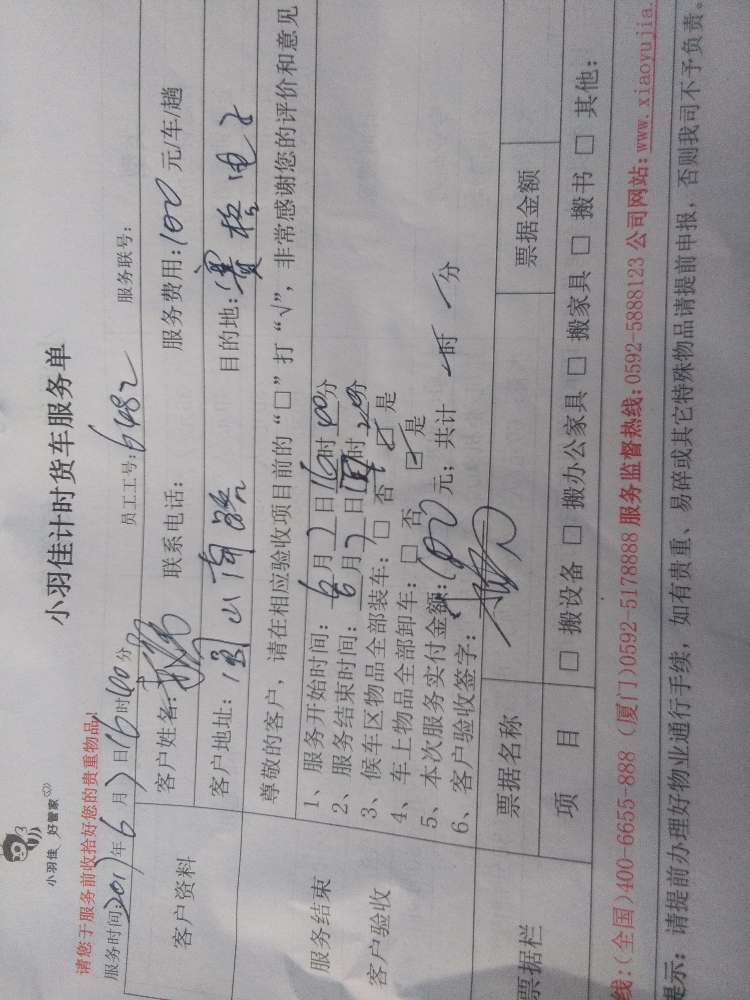 小羽佳 好管家
小羽佳计时货车服务单
请您于服务前收拾好您的贵重物品!
服务时间:2017年6月7日16时00分 员工工号:6482 服务联号:
客户资料
客户姓名: 联系电话: 服务费用:100元/车/趟
客户地址: 目的地:赛格电子
尊敬的客户,请在相应验收项目前的“□”打“√”,非常感谢您的评价和意见
服务结束
客户验收
1、服务开始时间:6月7日16时00分
2、服务结束时间:6月7日 时20分
3、候车区物品全部装车:□ 否 ☑ 是
4、车上物品全部卸车:□ 否 ☑ 是
5、本次服务实付金额:100元;共计 时 分
6、客户验收签字:
票据栏
票据名称 票据金额
项目 □ 搬设备 □ 搬办公家具 □ 搬家具 □ 搬书 □ 其他:
线:(全国)400-6655-888 (厦门)0592-5178888 服务监督热线:0592-5888123 公司网站:www.xiaoyujia.
提示:请提前办理好物业通行手续,如有贵重、易碎或其它特殊物品请提前申报,否则我司不予负责。